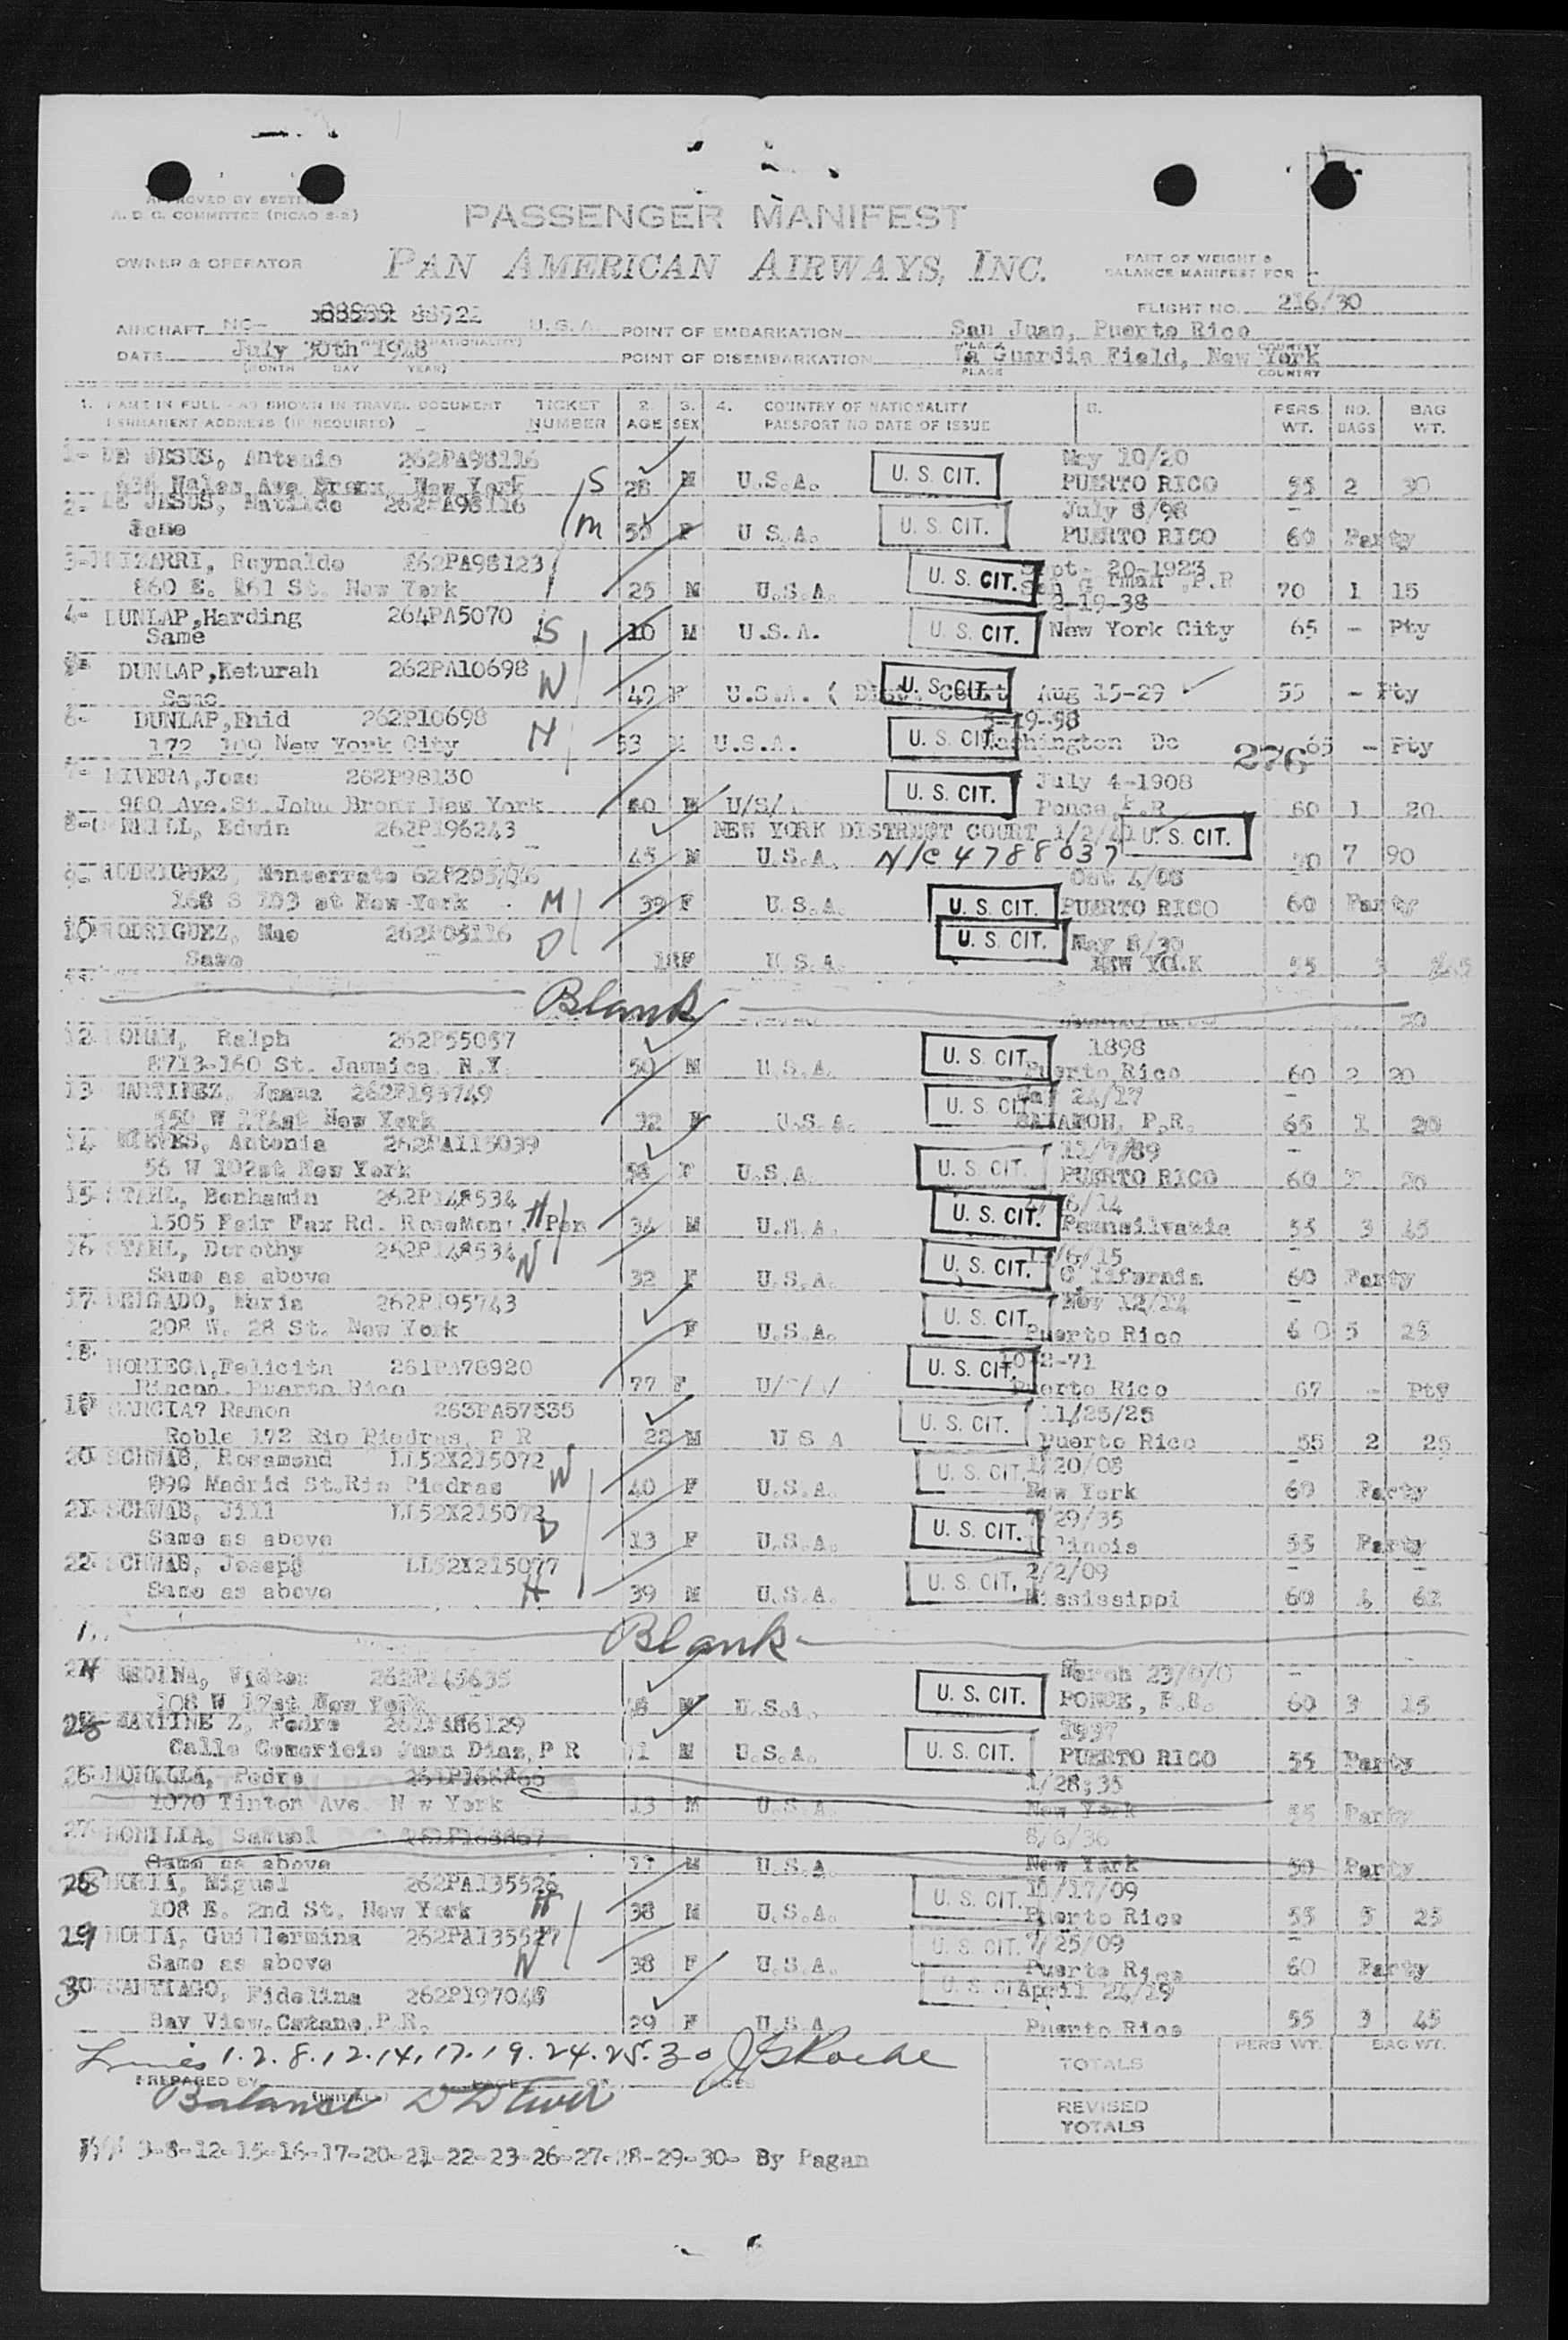 APPROVED BY SYSTEM
A. D. C. COMMITTEE (PICAO 8-2)
PASSENGER MANIFEST
OWNER & OPERATOR
PAN AMERICAN AIRWAYS, INC.
PART OF WEIGHT &
BALANCE MANIFEST FOR
FLIGHT NO. 216/30
AIRCRAFT NC- 88922 U.S.A. POINT OF EMBARKATION San Juan, Puerto Rico
DATE July 30th 1948 POINT OF DISEMBARKATION La Guardia Field, New York
(MONTH DAY YEAR) PLACE COUNTRY
1. NAME IN FULL - AS SHOWN IN TRAVEL DOCUMENT TICKET 2. 3. 4. COUNTRY OF NATIONALITY 5. PERS. NO. BAG
PERMANENT ADDRESS (IF REQUIRED) NUMBER AGE SEX PASSPORT NO DATE OF ISSUE WT. BAGS WT.
1- DE JESUS, Antonio 262PA98116 May 10/20
Ave Bronx New York S 28 M U.S.A. U. S. CIT. PUERTO RICO 55 2 30
2- DE JESUS, Matilde 262PA98116 July 8/98
Same M 50 F U S.A. U. S. CIT. PUERTO RICO 60 Party
3- IRIZARRI, Reynaldo 262PA98123 Sept- 20-1923
860 E. 161 St. New York 25 M U.S.A. U. S. CIT. San German ,P.R 70 1 15
4- DUNLAP,Harding 264PA5070 2-19-38
Same S 10 M U.S.A. U. S. CIT. New York City 65 - Pty
5- DUNLAP,Keturah 262PA10698
Same W 49 F U.S.A. ( Dist. Court U. S. CIT. Aug 15-29 55 - Pty
6- DUNLAP,Enid 262P10698 -19-98
172 109 New York City H 53 M U.S.A. U. S. CIT. Washington Dc 276 65 - Pty
7- RIVERA,Jose 262P98130 July 4-1908
980 Ave.St.John Bronx New York 40 M U/S/ U. S. CIT. Ponce P.R 60 1 20
8- ONEILL, Edwin 262P196243 NEW YORK DISTRICT COURT 1/2/41 U. S. CIT.
45 M U.S.A. N/C 4788037 70 7 90
9- RODRIGUEZ, Monserrate Oct 4/08
168 S 103 st New York M 39 F U.S.A. U. S. CIT. PUERTO RICO 60 Party
10- RODRIGUEZ, Mae May 8/30
Same D 18 F U.S.A. U. S. CIT. NEW YORK 55
Blank
12- ROMAN, Ralph 262P55087 1898
8713-160 St. Jamaica N.Y. 50 M U.S.A. U. S. CIT. Puerto Rico 60 2 20
13 MARTINEZ, Juana 262P195749 May 24/17
New York 32 U.S.A. U. S. CIT. BAYAMON, P.R. 65 1 20
14. NIEVES, Antonia 262PA115039 11/7/89
56 W 102st New York 58 F U.S.A. U. S. CIT. PUERTO RICO 60 20
15- STAHL, Benhamin 262P148534 H /6/14
1505 Fair Fax Rd. RoseMont. Pen 34 M U.S.A. U. S. CIT. Pennsilvania 55 3 45
16- STAHL, Dorothy 262P148534 W /6/15
Same as above 32 F U.S.A. U. S. CIT. California 60 Party
17- DELGADO, Maria 262P195743 Nov 12/14
208 W. 28 St. New York F U.S.A. U. S. CIT. Puerto Rico 60 5 25
18- NORIEGA,Felicita 261PA78920 10-2-71
Rincon. Puerto Rico 77 F U. S. CIT. Puerto Rico 67 - Pty
19 GARCIA? Ramon 263PA57535 11/25/25
Roble 172 Rio Piedras, P R 22 M U S A U. S. CIT. Puerto Rico 55 2 25
20- SCHWAB, Rosamond LL52X215072 W 1/20/08
890 Madrid St.Rio Piedras 40 F U.S.A. U. S. CIT. New York 60 Party
21- SCHWAB, Jill LL52X215072 D /29/35
Same as above 13 F U.S.A. U. S. CIT. Illinois 55 Party
22- SCHWAB, Joseph LL52X215077 2/2/09
Same as above H 39 M U.S.A. U. S. CIT. Mississippi 60 4 62
Blank
24 MEDINA, Victor 262P145635 March 23/
108 W 17st New York M U.S.A. U. S. CIT. PONCE, P.R. 60 3 15
25 MARTINEZ, Pedro 262PA86129 1937
Calle Comericio Juan Diaz,P R 11 M U.S.A. U. S. CIT. PUERTO RICO 55 Party
26- Pedro 1/28;35
1070 Tinton Ave. N w York 13 M U.S.A. New York 55 Party
27- Samuel 8/6/36
Same as above M U.S.A. New York 50 Party
28 Miguel 262PA135526 11/17/09
108 E. 2nd St. New York H 38 M U.S.A. U. S. CIT. Puerto Rico 55 5 25
29 Guillermina 262PA135527 7/25/09
Same as above W 38 F U.S.A. U. S. CIT. Puerto Rico 60 Party
30 SANTIAGO, Fidelina April 24/19
Bay View.Catano.P.R. 29 F U.S.A U. S. CIT. Puerto Rico 55 3 45
Lines 1.2.8.12.14.17.19.24.25.30 JGRoche
PERS WT. BAG WT.
TOTALS
PREPARED BY (INITIALS) PAGE OF PAGES
Balance
REVISED
TOTALS
3-8-12-15-16-17-20-21-22-23-26-27-28-29-30- By Pagan